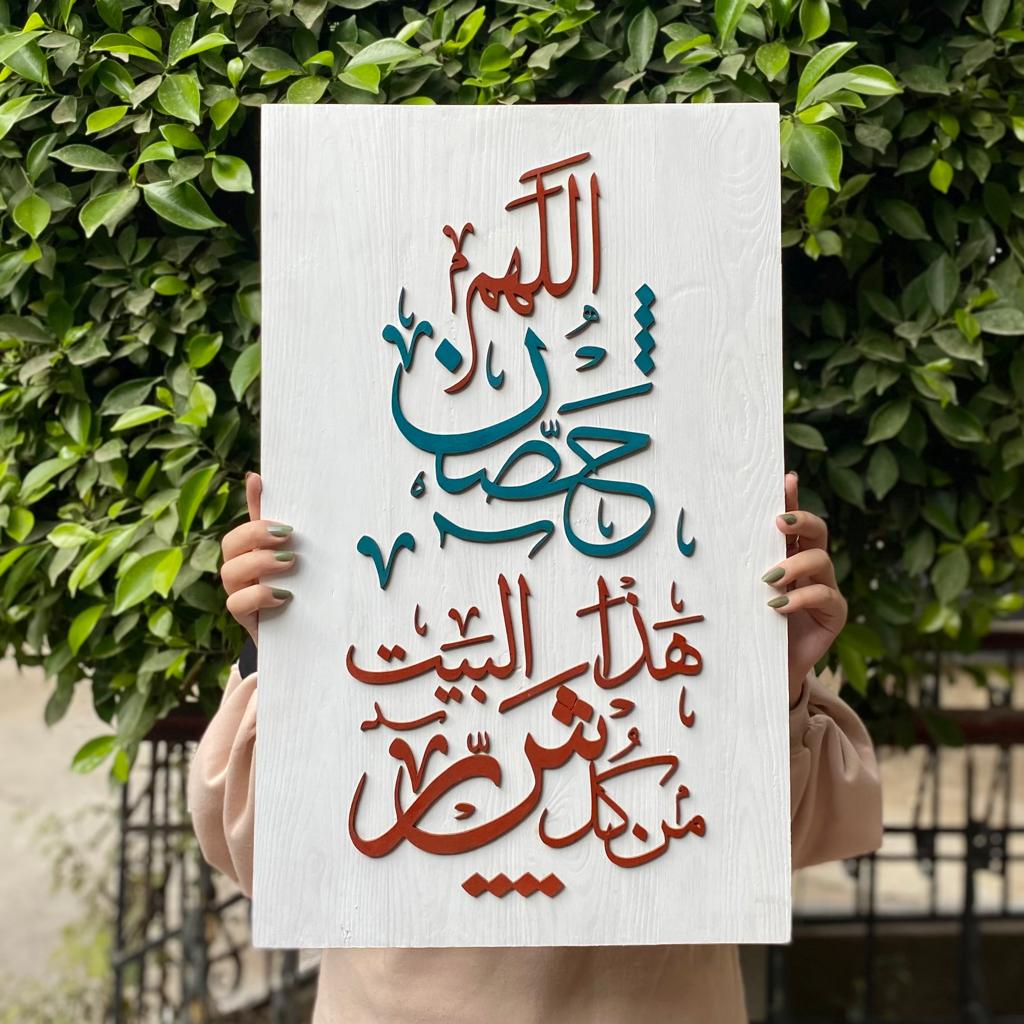 اللهم
حصّن
هذا البيت
من كل شرّ